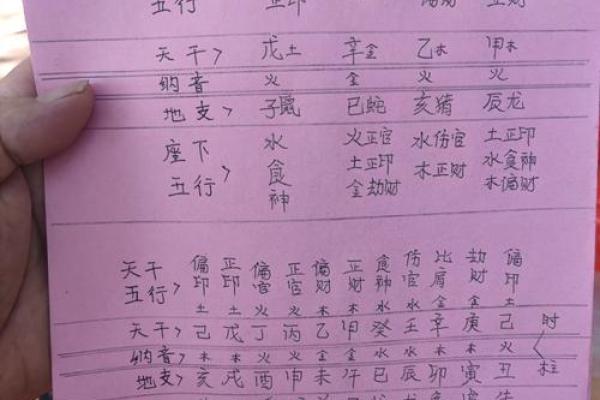 五行 正印 偏财 正财
天干> 戊土 辛金 乙木 甲木
纳音 火 金 火 火
地支> 子鼠 巳蛇 亥猪 辰龙
座下五行> 水食神 火正官 水伤官 土正印
土正印 木正财 水食神
金劫财 木偏财
天干五行> 偏印 正印 偏官 正官 偏财 正财 食神 伤官 比肩 劫财 偏印
土 土 火 火 木 木 水 水 金 金 土
天干> 己 戊 丁 丙 乙 甲 癸 壬 辛 庚 己 时
纳音 木 木 火 火 金 金 水 水 木 木 火 <
地支> 亥 戌 酉 申 未 午 巳 辰 卯 寅 丑 柱